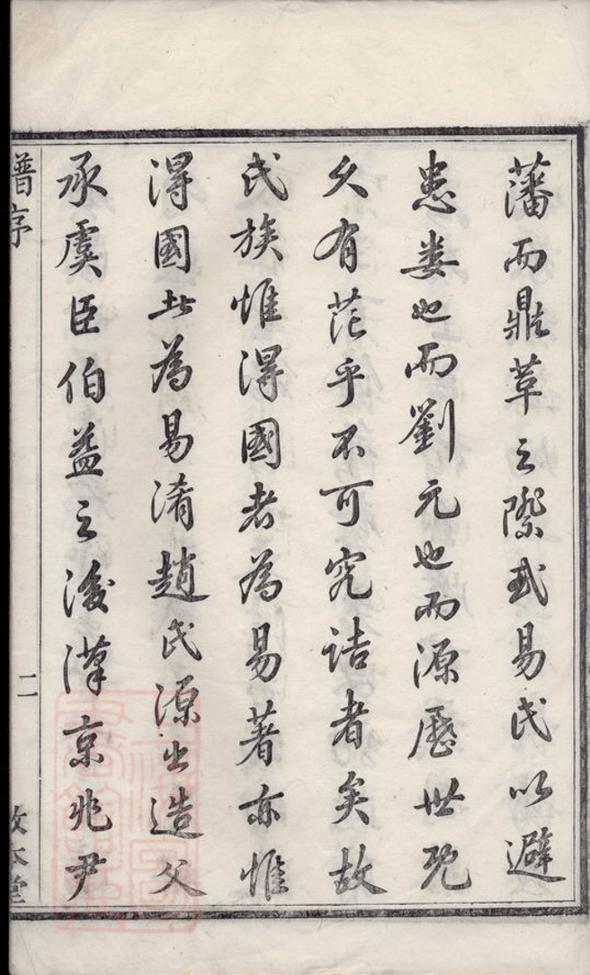 藩而鼎革之際或易氏以避
患婁也而劉元也而源歷世既
久有茫乎不可究詰者矣故
氏族惟得國者為易著亦惟
得國此為易淆趙氏源出造父
承虞臣伯益之後漢京兆尹
譜序
二
敦本堂